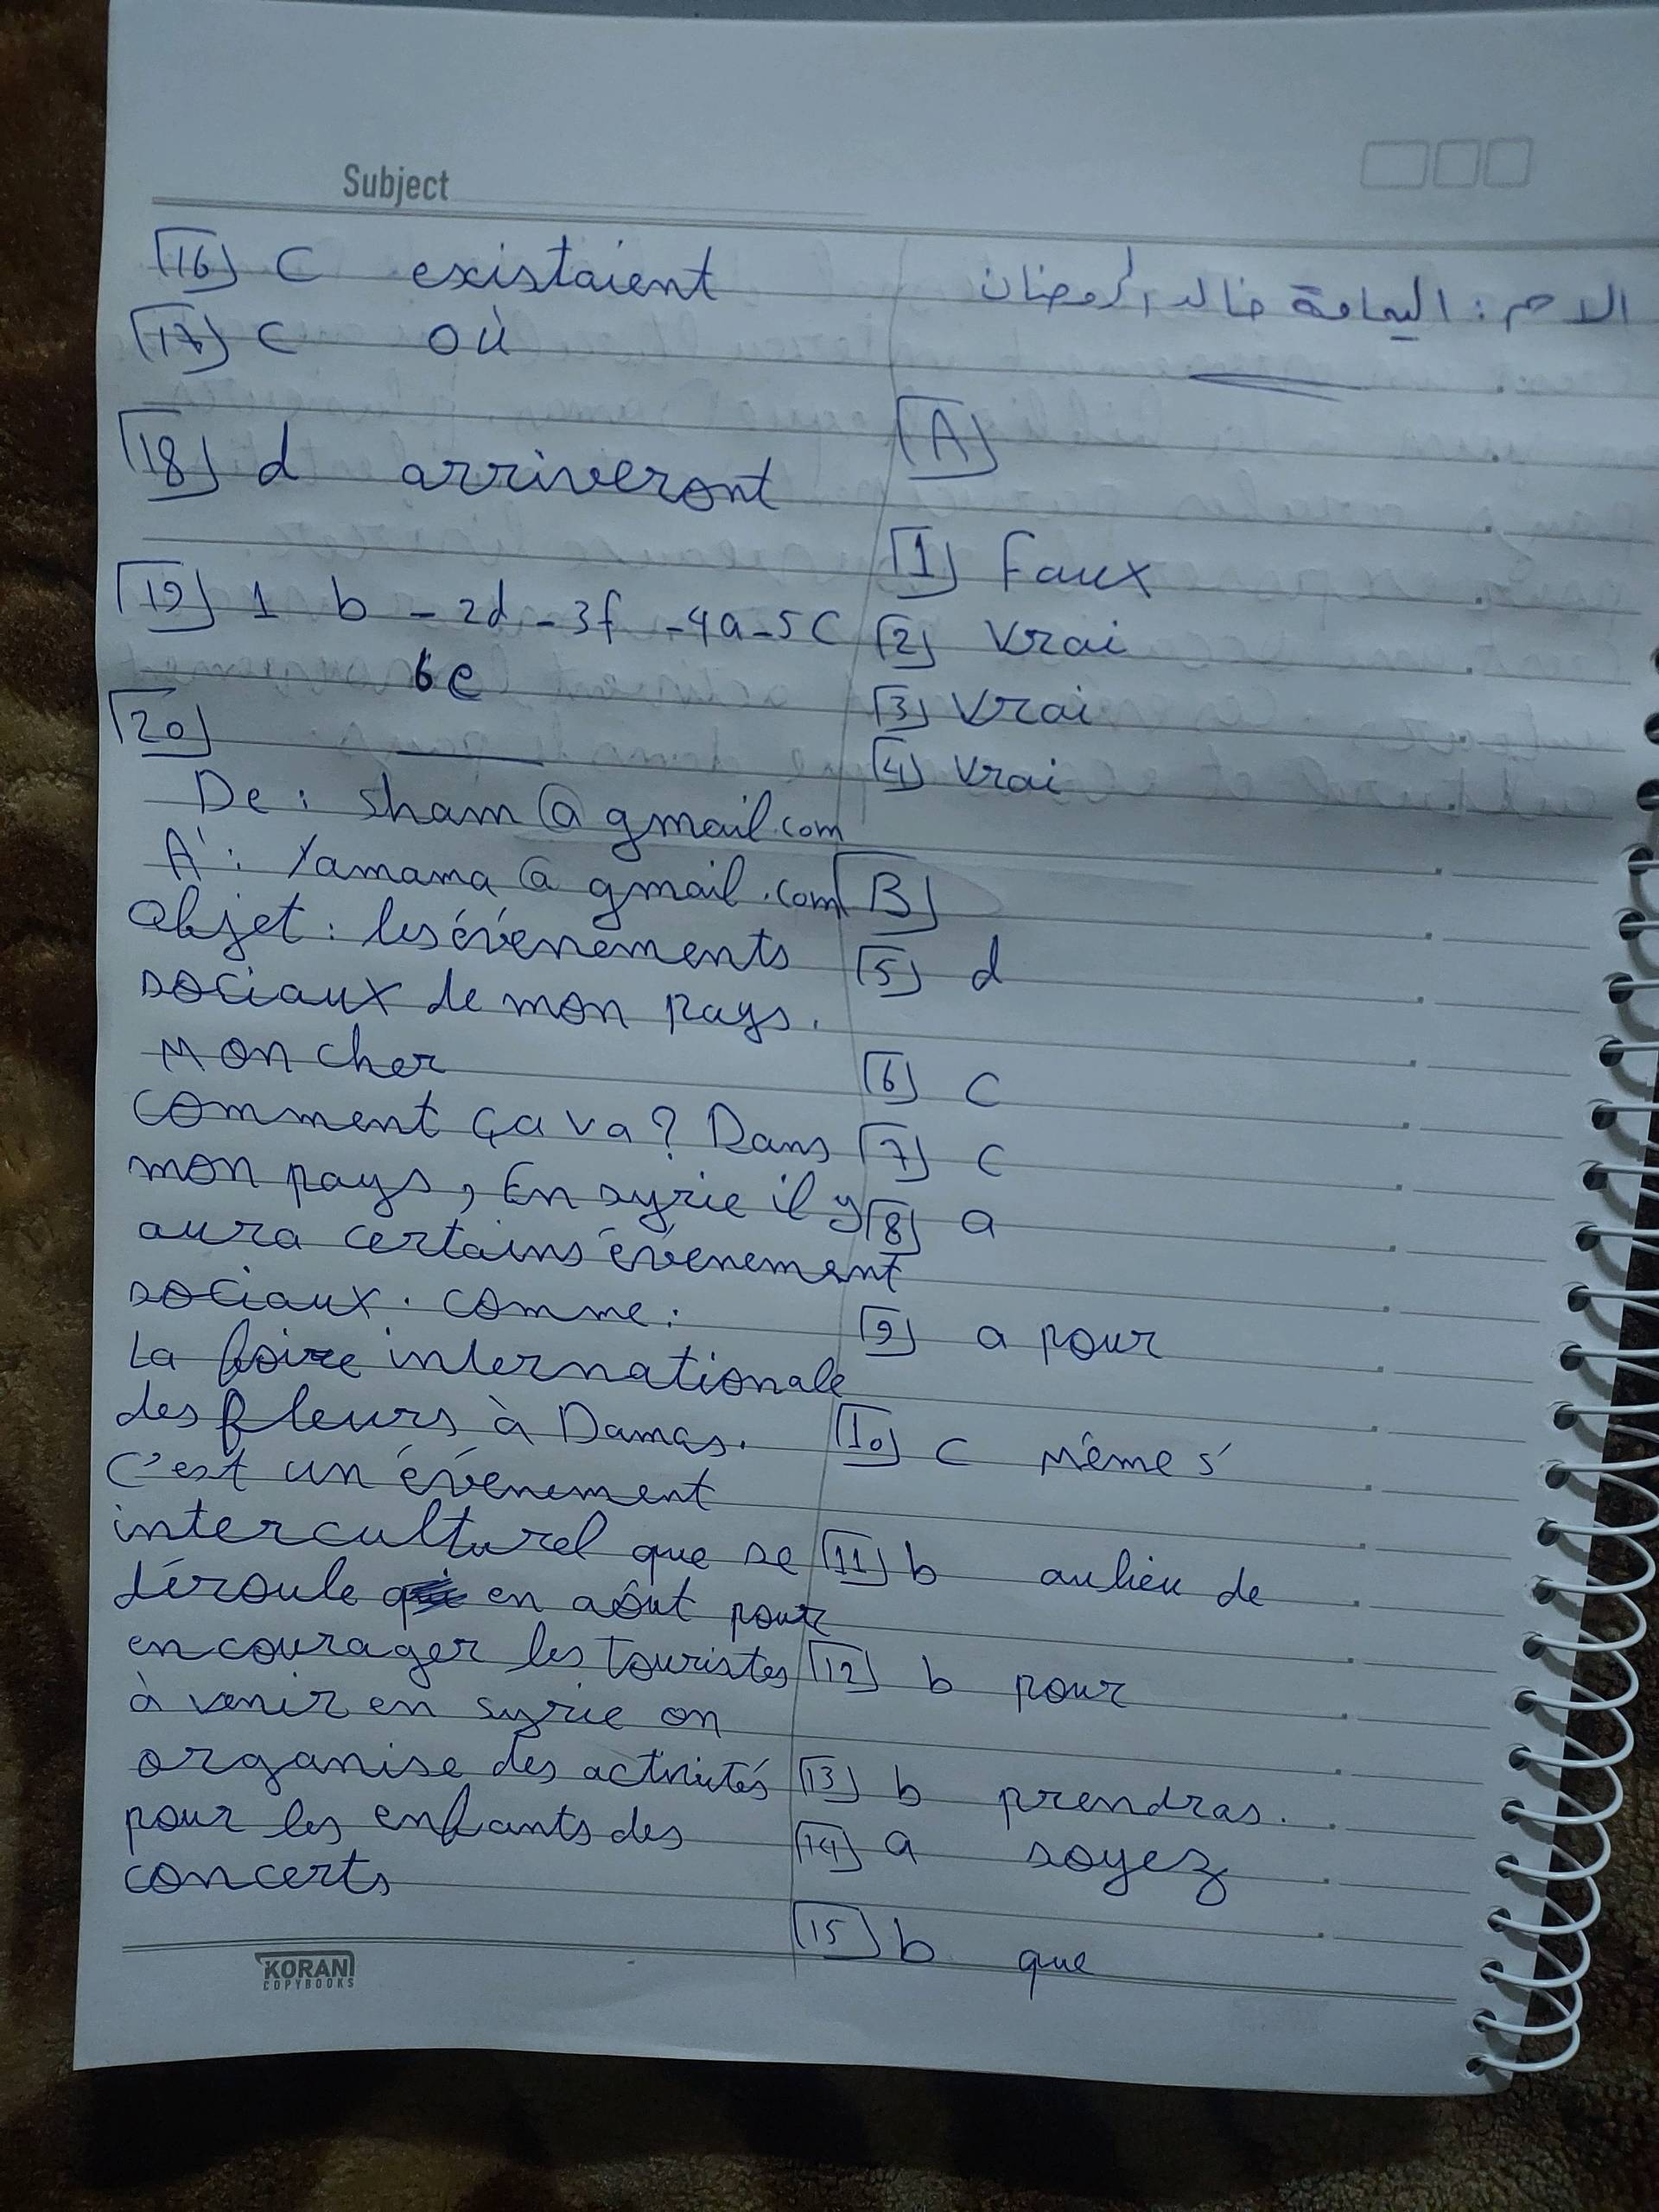 Subject
الاسم : اليمامة خالد الرمضان
[A]
[1] Faux
[2] Vrai
[3] Vrai
[4] Vrai
[B]
[5] d
[6] c
[7] c
[8] a
[9] a pour
[10] c Même s'
[11] b au lieu de
[12] b pour
[13] b prendras.
[14] a soyez
[15] b que
[16] C existaient
[17] C Où
[18] d arriveront
[19] 1 b - 2d - 3f - 4a - 5C
6e
[20]
De : sham@gmail.com
A' : Yamama@gmail.com
Objet : les événements
sociaux de mon pays.
Mon cher
comment ça va ? Dans
mon pays, En syrie il y
aura certains événement
sociaux. comme :
La foire internationale
des fleurs à Damas.
C'est un événement
interculturel que se
déroule en aôut pour
encourager les touristes
à venir en syrie on
organise des activités
pour les enfants des
concerts
KORANI
COPYBOOKS